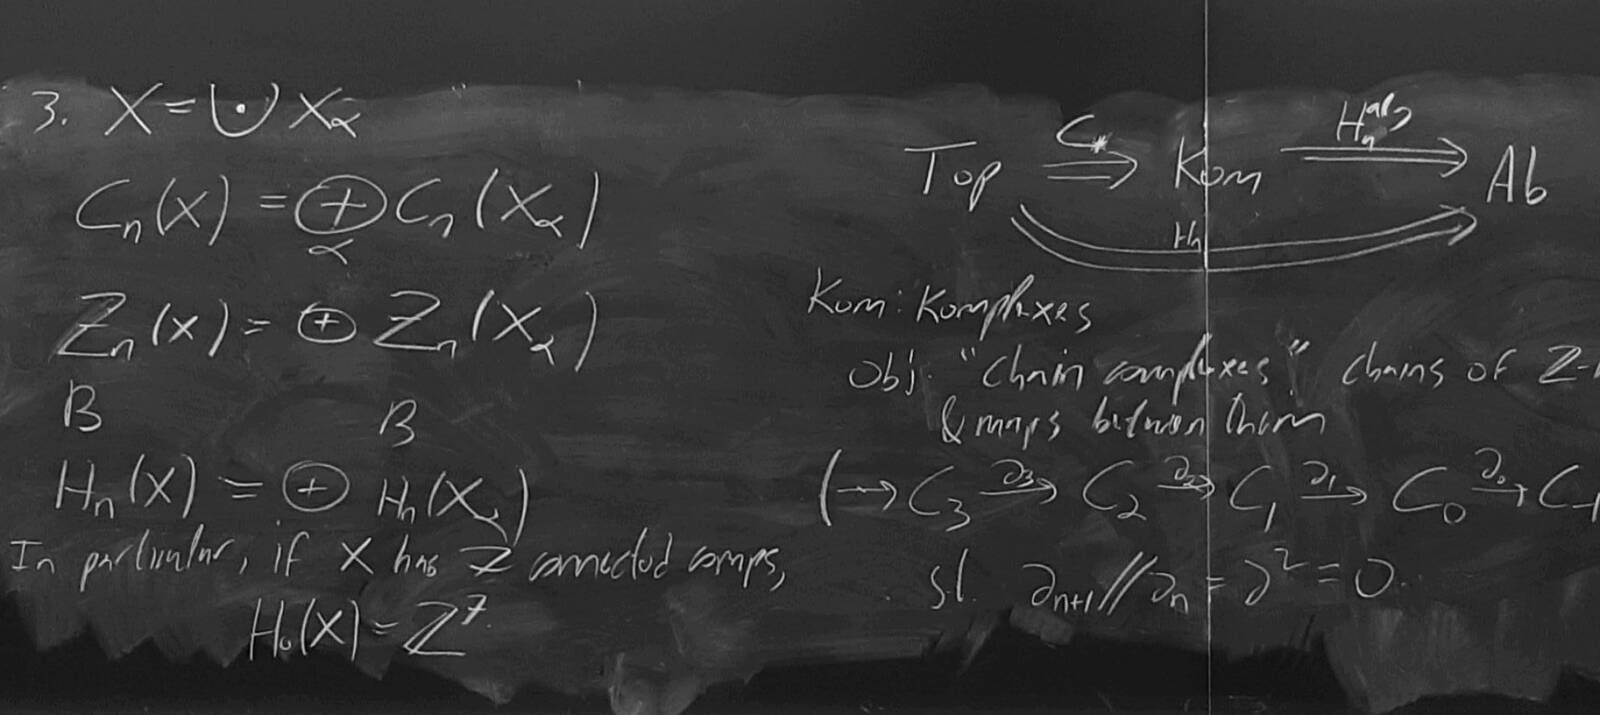 3. X = ⨃ X_α
C_n(X) = ⊕_α C_n(X_α)
Z_n(X) = ⊕ Z_n(X_α)
B B
H_n(X) = ⊕ H_n(X_α)
In particular, if X has 7 connected comps,
H_0(X) = Z^7
Top ⇒ Kom ⇒ Ab
C_* H_n^{alg}
H_n
Kom: Komplexes
Obj: "chain complexes" chains of Z-
& maps between them
(→ C_3 →^{∂_3} C_2 →^{∂_2} C_1 →^{∂_1} C_0 →^{∂_0} C_{-1}
s.t. ∂_{n+1}//∂_n = ∂^2 = 0